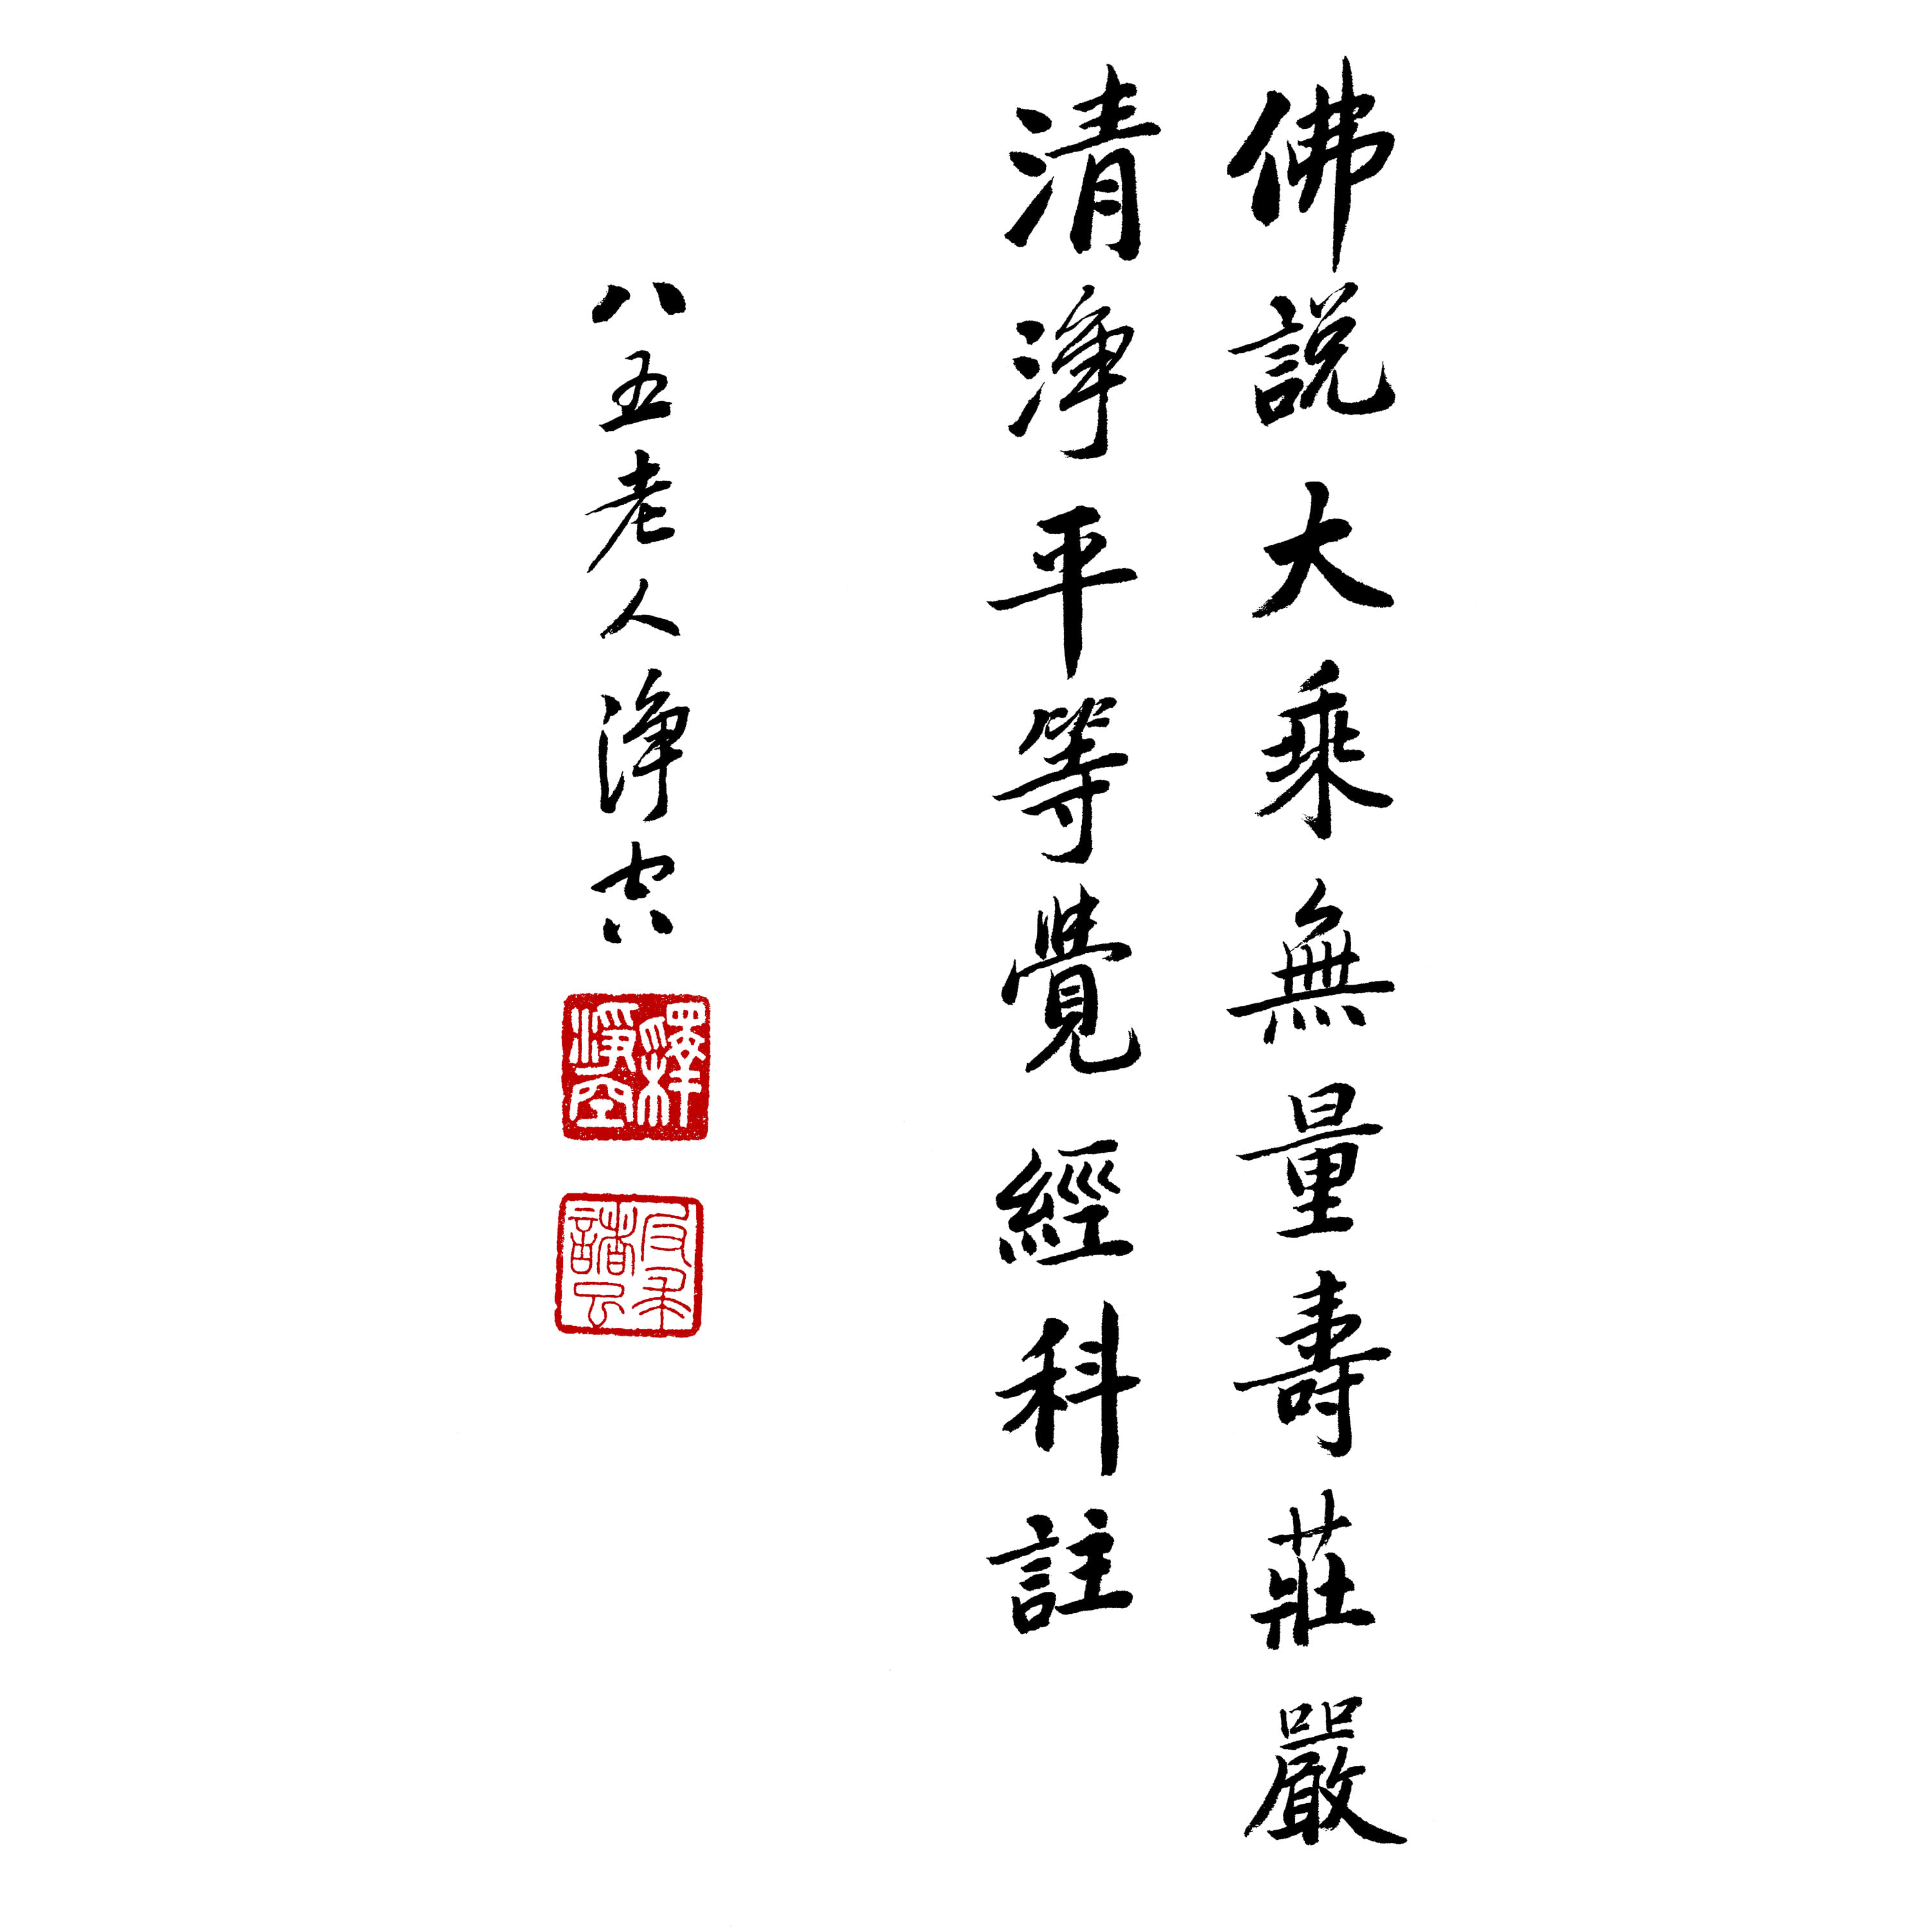 佛説大乘無量壽莊嚴
清淨平等覺經科註
八五老人淨空
釋淨空